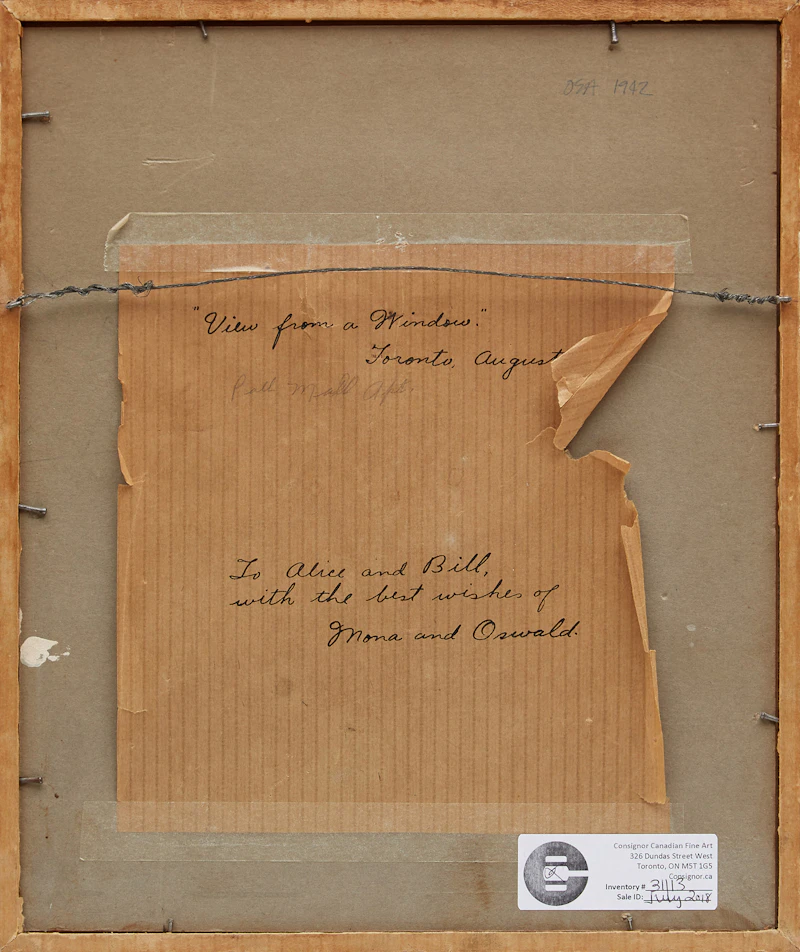 OSA 1942
"View from a Window."
Toronto, August
Apt.
To Alice and Bill,
with the best wishes of
Mona and Oswald.
Consignor Canadian Fine Art
326 Dundas Street West
Toronto, ON M5T 1G5
Consignor.ca
Inventory # 31113
Sale ID: July 2018